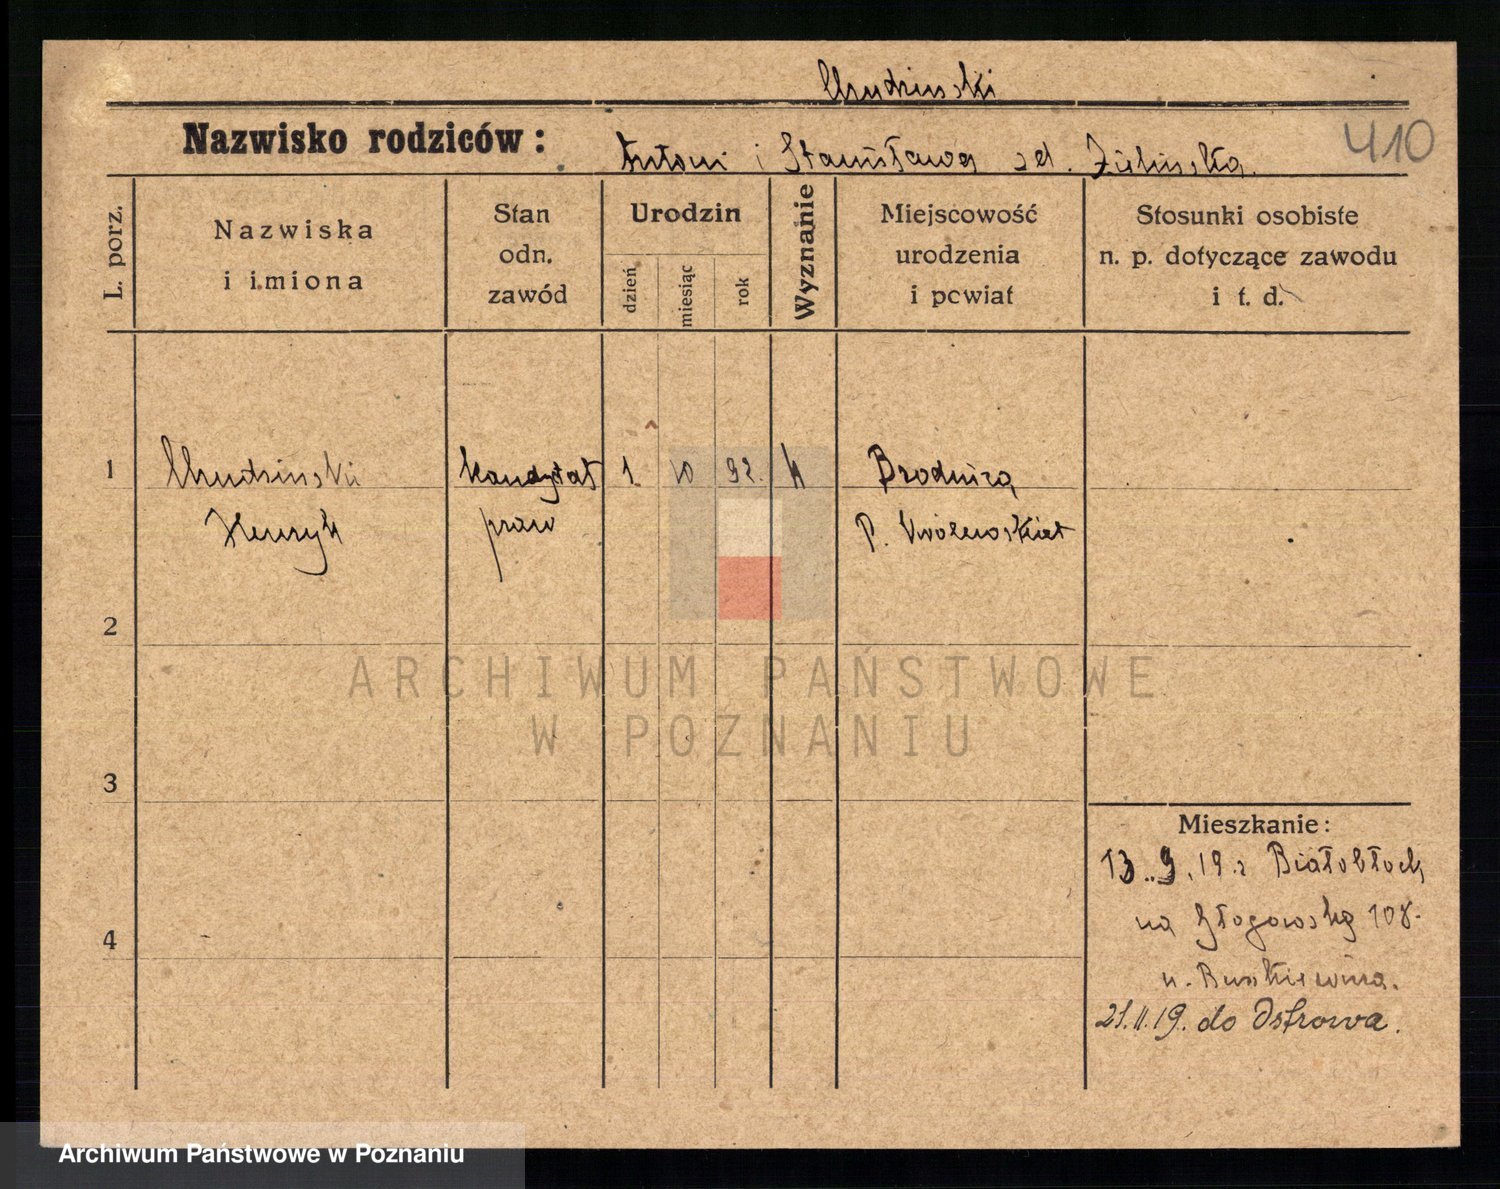 Chudzinski
Nazwisko rodziców: Antoni i Stanisława zd. Zielinska.
410
L. porz.
Nazwiska
i imiona
Stan
odn.
zawód
Urodzin
dzień
miesiąc
rok
Wyznanie
Miejscowość
urodzenia
i powiat
Stosunki osobiste
n. p. dotyczące zawodu
i t. d.
1 Chudzinski kandydat 1. 10 92. k Brodnica
Henryk praw P.
2
3
4
Mieszkanie:
13.9.19. z Białobłoch
na Głogowską 108.
u.
21.11.19. do Ostrowa.
ARCHIWUM PAŃSTWOWE
W POZNANIU
Archiwum Państwowe w Poznaniu